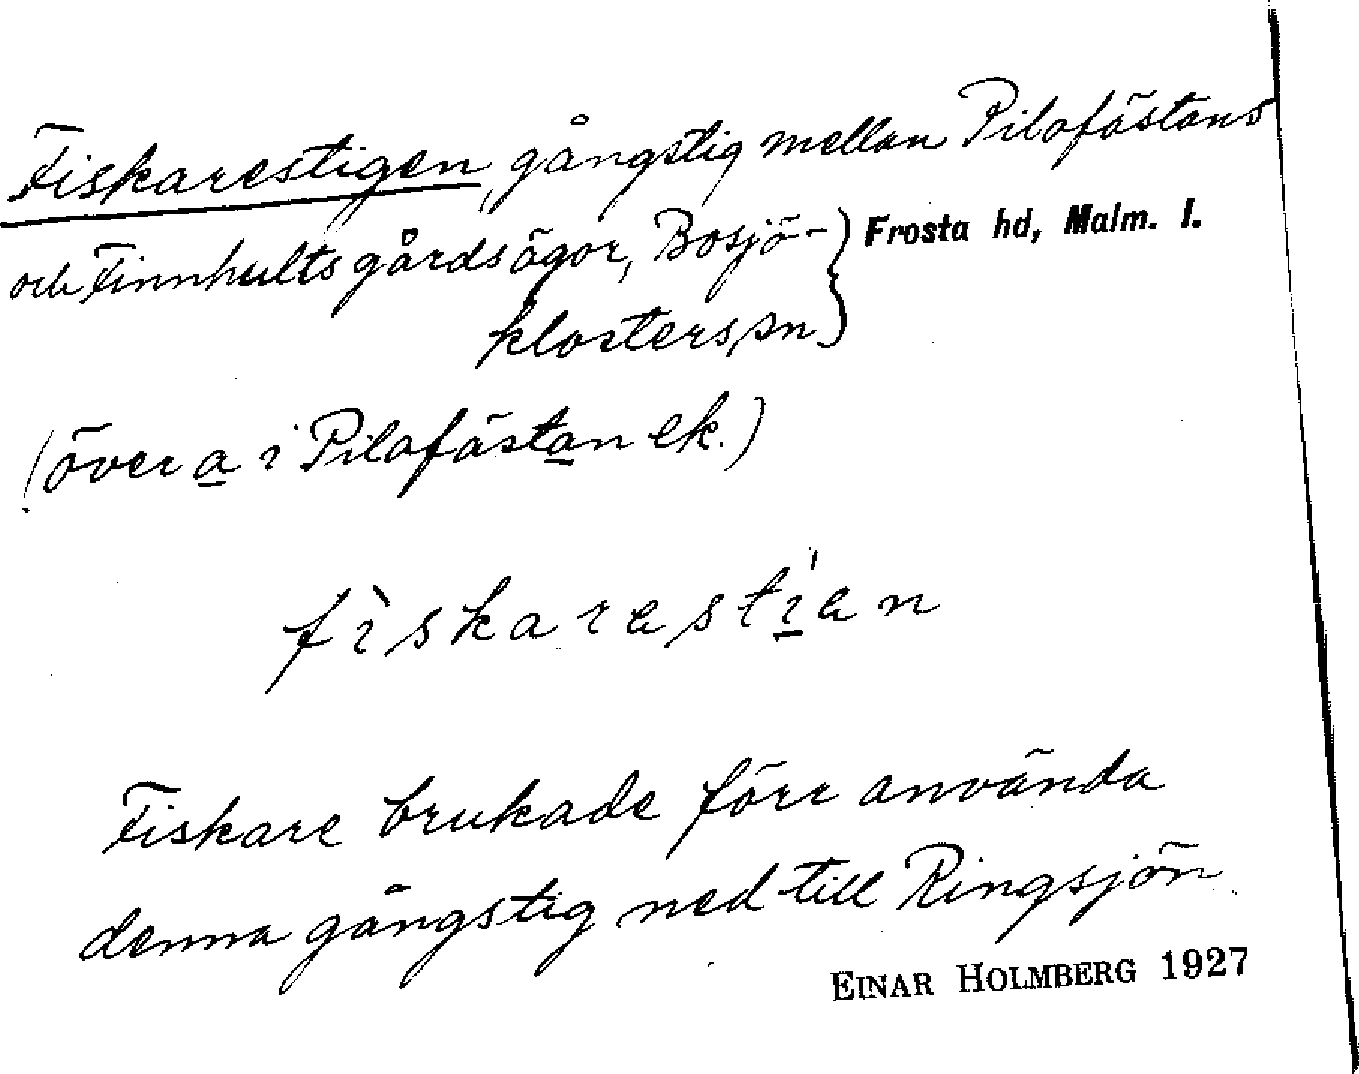 Fiskarestigen, gångstig mellan Pilafästans
och Finnhults gårdsägor, Bosjö- } Frosta hd, Malm. l.
klosters sn
(över a i Pilafästan ek.)
fìskarestien
Fiskare brukade förr använda
denna gångstig ned till Ringsjön.
EINAR HOLMBERG 1927